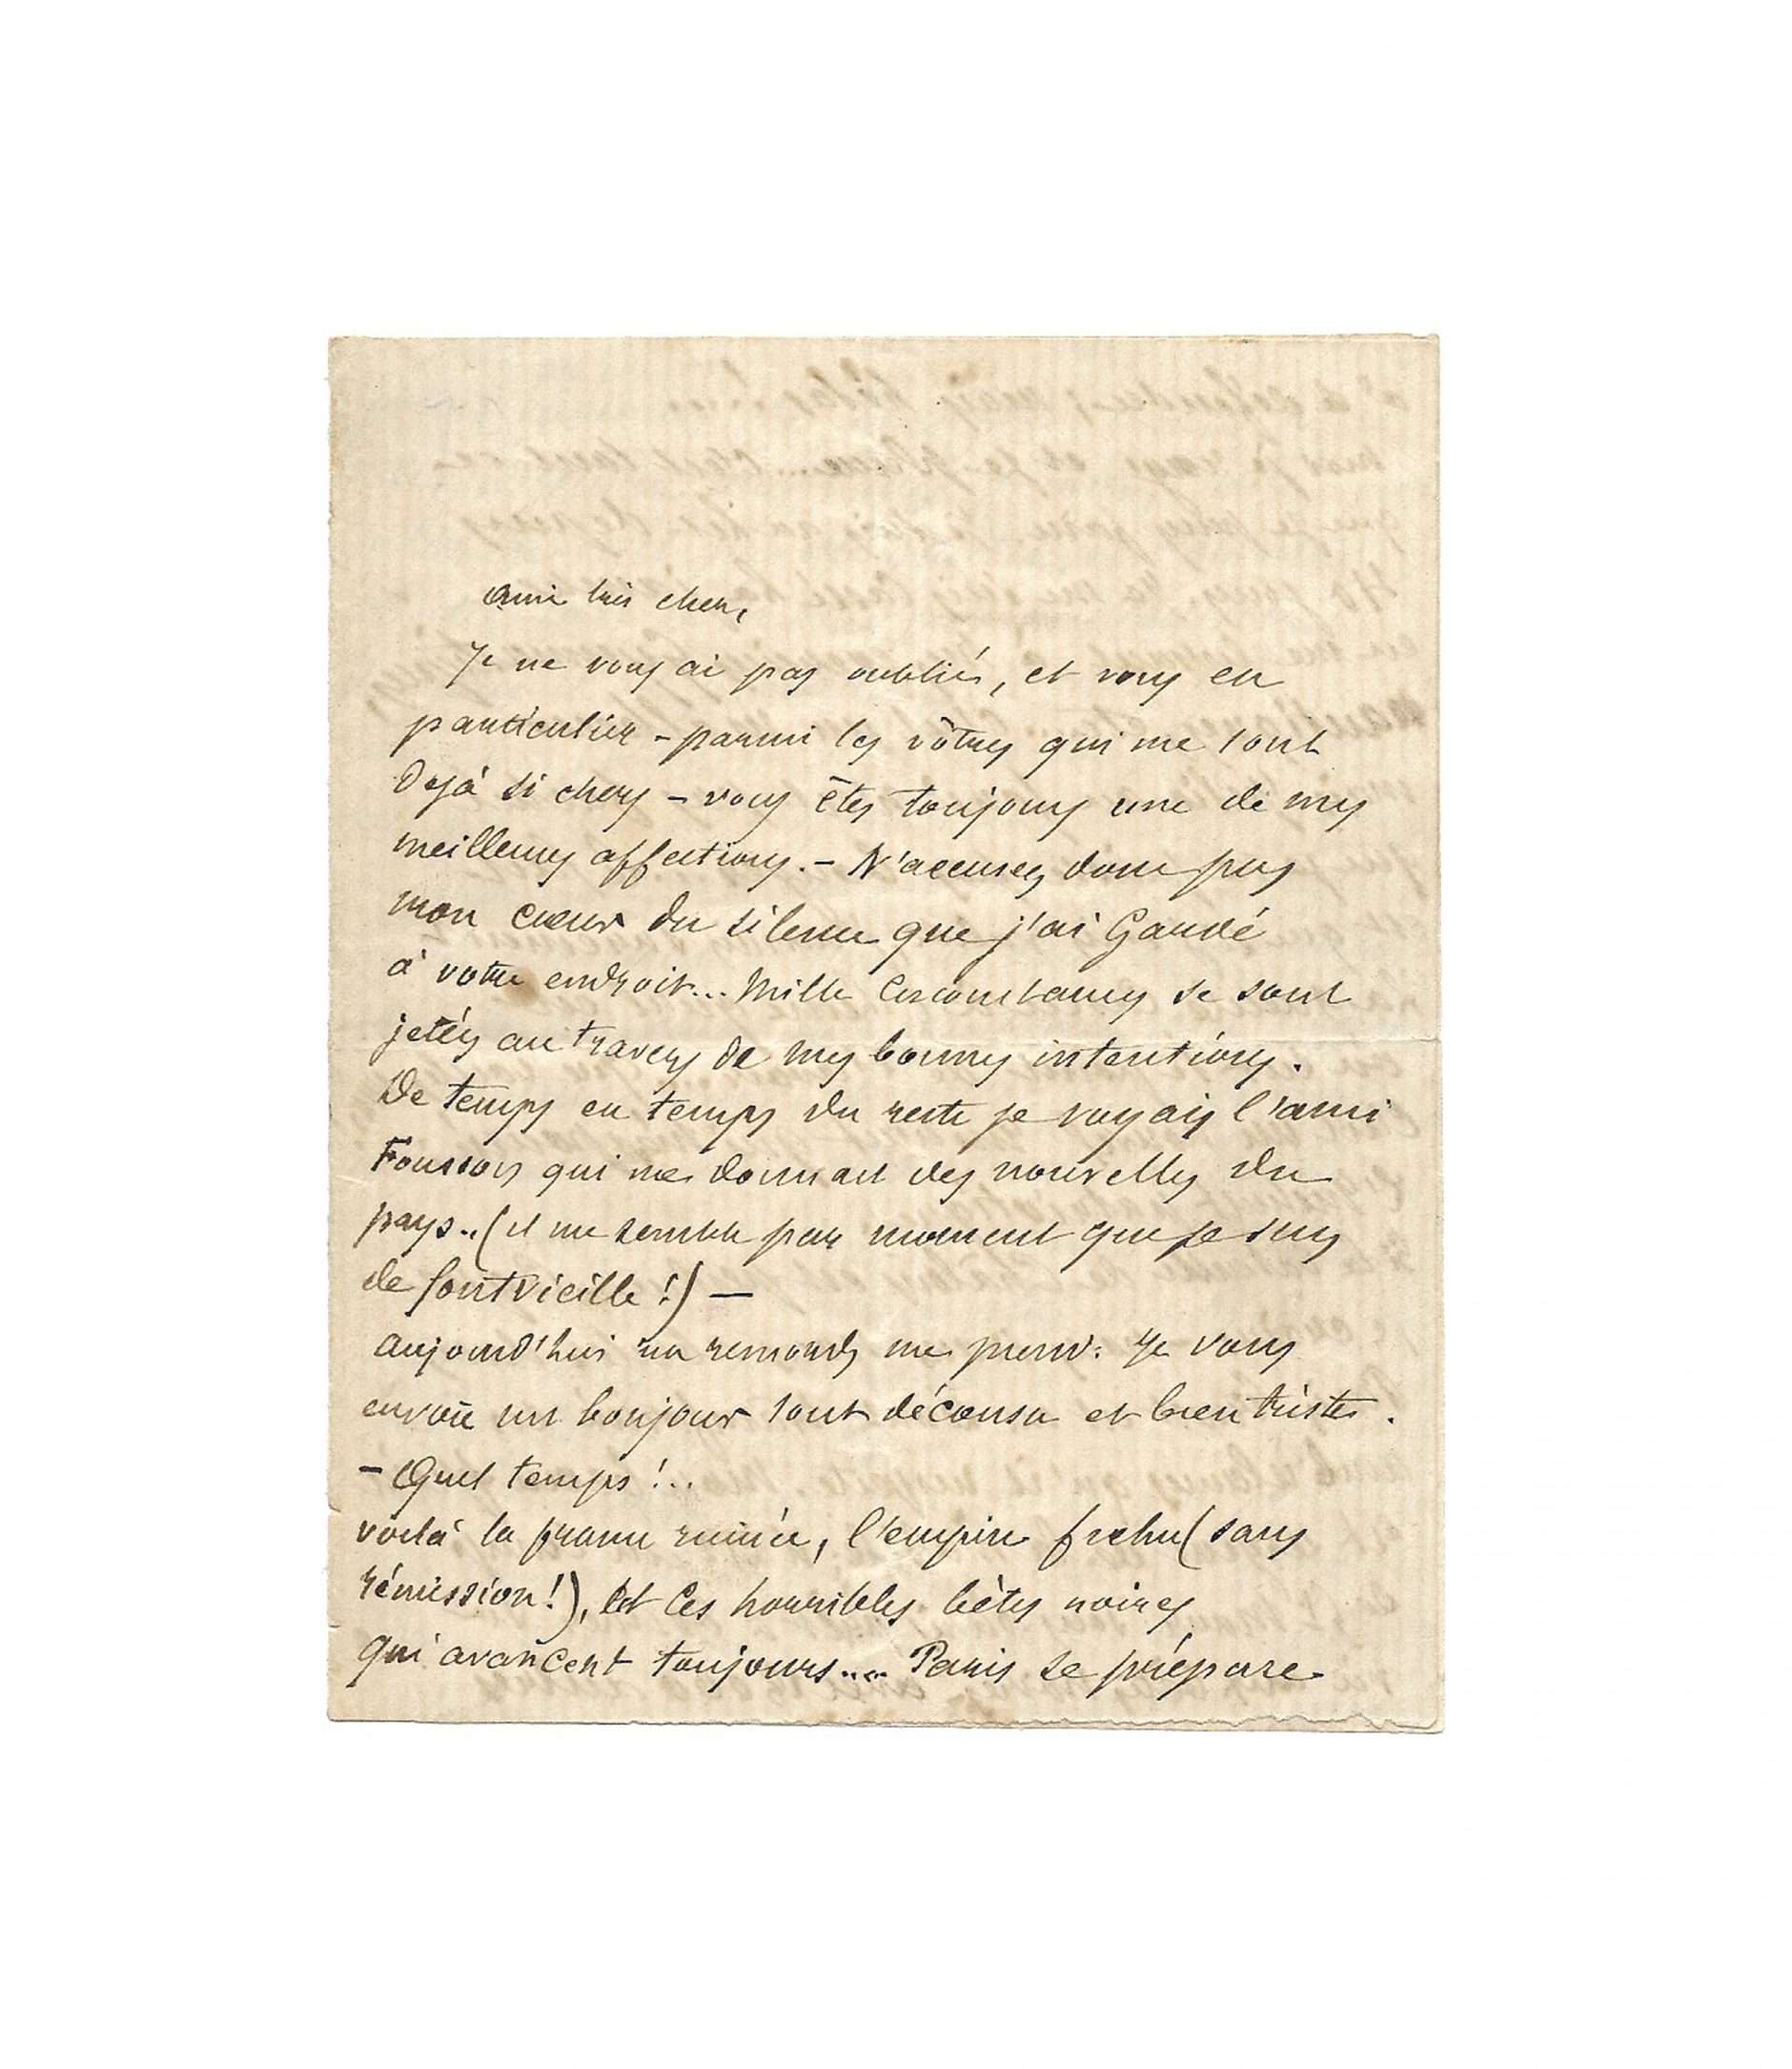 Ami très cher,
Je ne vous ai pas oubliés, et vous en
particulier - parmi les vôtres qui me sont
Déjà si chers - vous êtes toujours une de mes
meilleures affections. - N'accusez donc pas
mon cœur du silence que j'ai Gardé
à votre endroit... Mille Circonstances se sont
jetées au travers de mes bonnes intentions.
De temps en temps du reste je voyais l'ami
qui me donnait des nouvelles du
pays.. (il me semble par moment que je suis
de fontvieille !) —
Aujourd'hui un remords me prend. Je vous
envoie un bonjour tout décousu et bien triste.
- Quel temps !..
voilà la france ruinée, l'empire frehu (sans
rémission !), Et Ces horribles bêtes noires
qui avancent toujours.... Paris se prépare